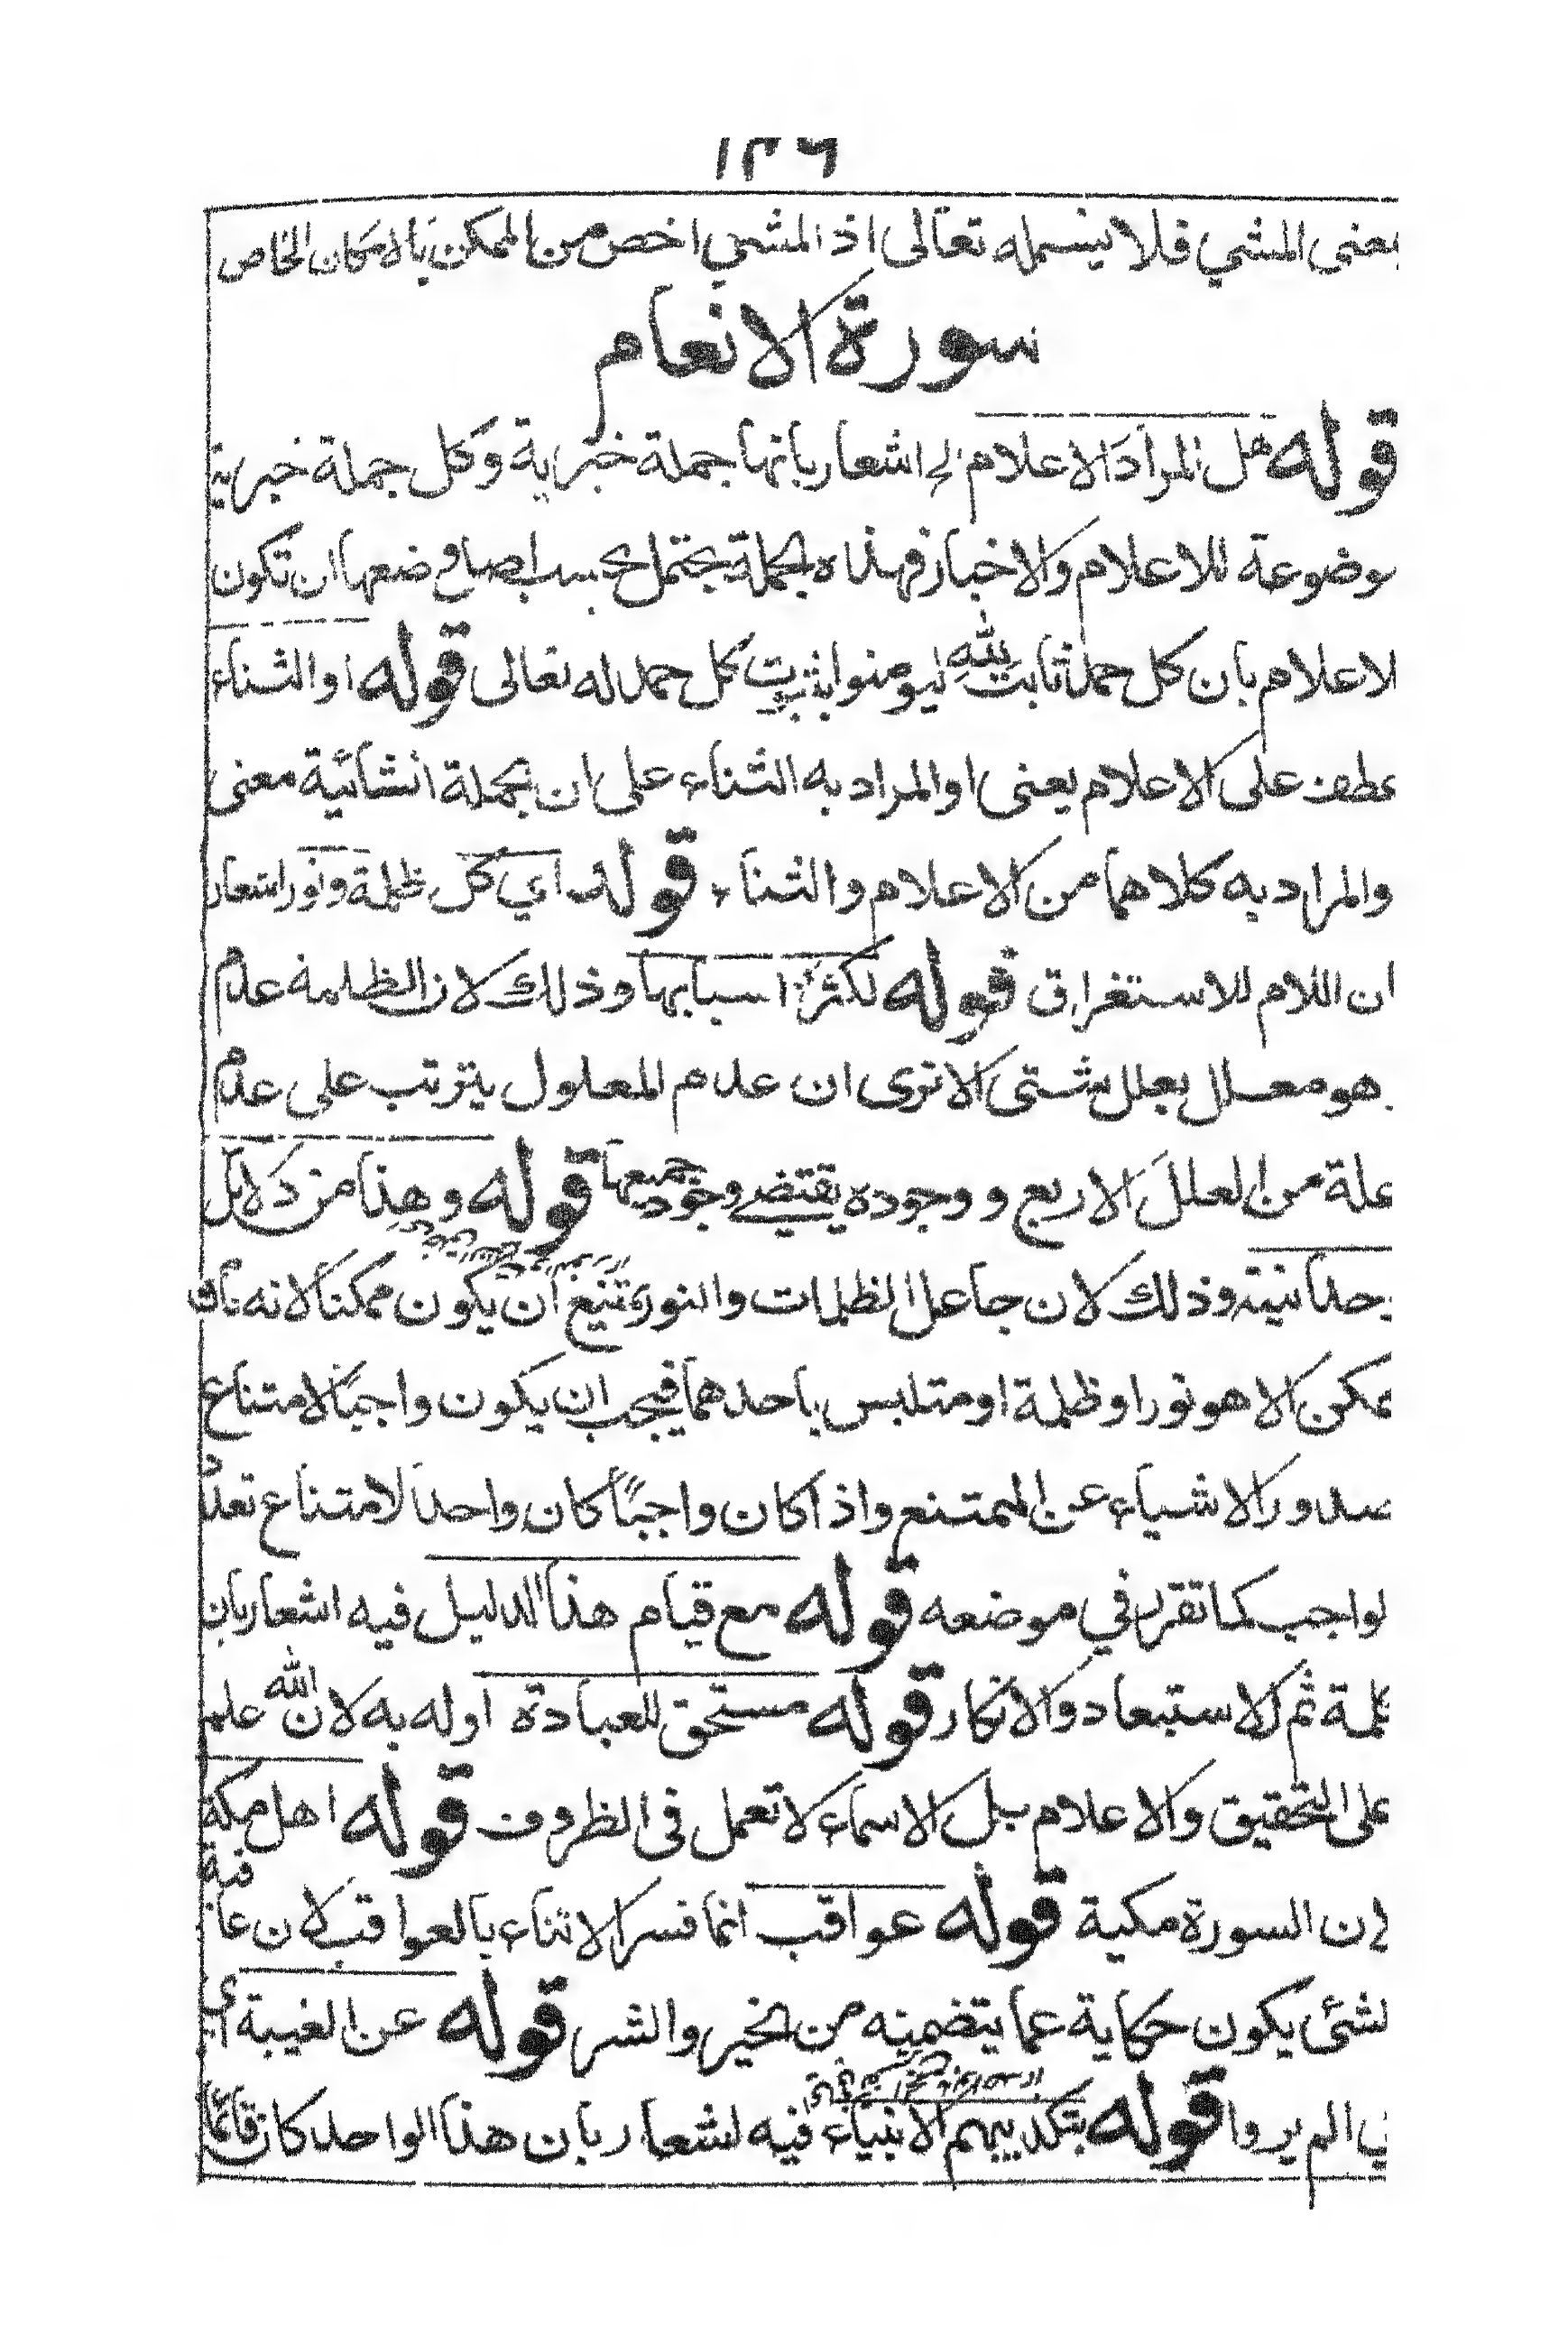 ١٣٦
بعنى المشي فلا يشمله تعالى اذ المشي اخص من الممكن بالامكان الخاص
سورة الانعام
قوله هل المراد الاعلام الخ اشعار بانها جملة خبرية وكل جملة خبرية
موضوعة للاعلام والاخبار فهذه الجملة يحتمل بحسب اصل وضعها ان تكون
لاعلام بان كل حمد ثابت لله ليومنوا بثبوت كل حمد لله تعالى قوله او الثناء
عطف على الاعلام يعنى او المراد به الثناء على ان الجملة انشائية معنى
والمراد به كلاهما من الاعلام والثناء قوله اي كل ظلمة ونور اشعار
ان اللام للاستغراق قوله لكثرة اسبابها وذلك لان الظلمة عدم
هو معلل بعلل شتى الا ترى ان عدم المعلول يترتب على عدم
علة من العلل الاربع ووجوده يقتضي وجود جميعها قوله وهذا من دلائل
وحدانيته وذلك لان جاعل الظلمات والنور يمتنع ان يكون ممكنا لانه
ممكن الا هو نور او ظلمة او متلبس باحدهما فيجب ان يكون واجبًا لامتناع
صدور الاشياء عن الممتنع واذا كان واجبًا كان واحدا لامتناع تعدد
لواجب كما تقرر في موضعه قوله مع قيام هذا الدليل فيه اشعار بان
كلمة ثم للاستبعاد والانكار قوله مستحق للعبادة اوله به لان الله علم
على التحقيق والاعلام بل الاسماء لا تعمل فى الظروف قوله اهل مكة
لان السورة مكية قوله عواقب انما فسر الانباء بالعواقب لان عاقبة
لشئ يكون حكاية عما يتضمنه من الخير والشر قوله عن الغيبة اي
في الم يروا قوله بتكذيبهم الانبياء فيه اشعار بان هذا الواحد كان قائما